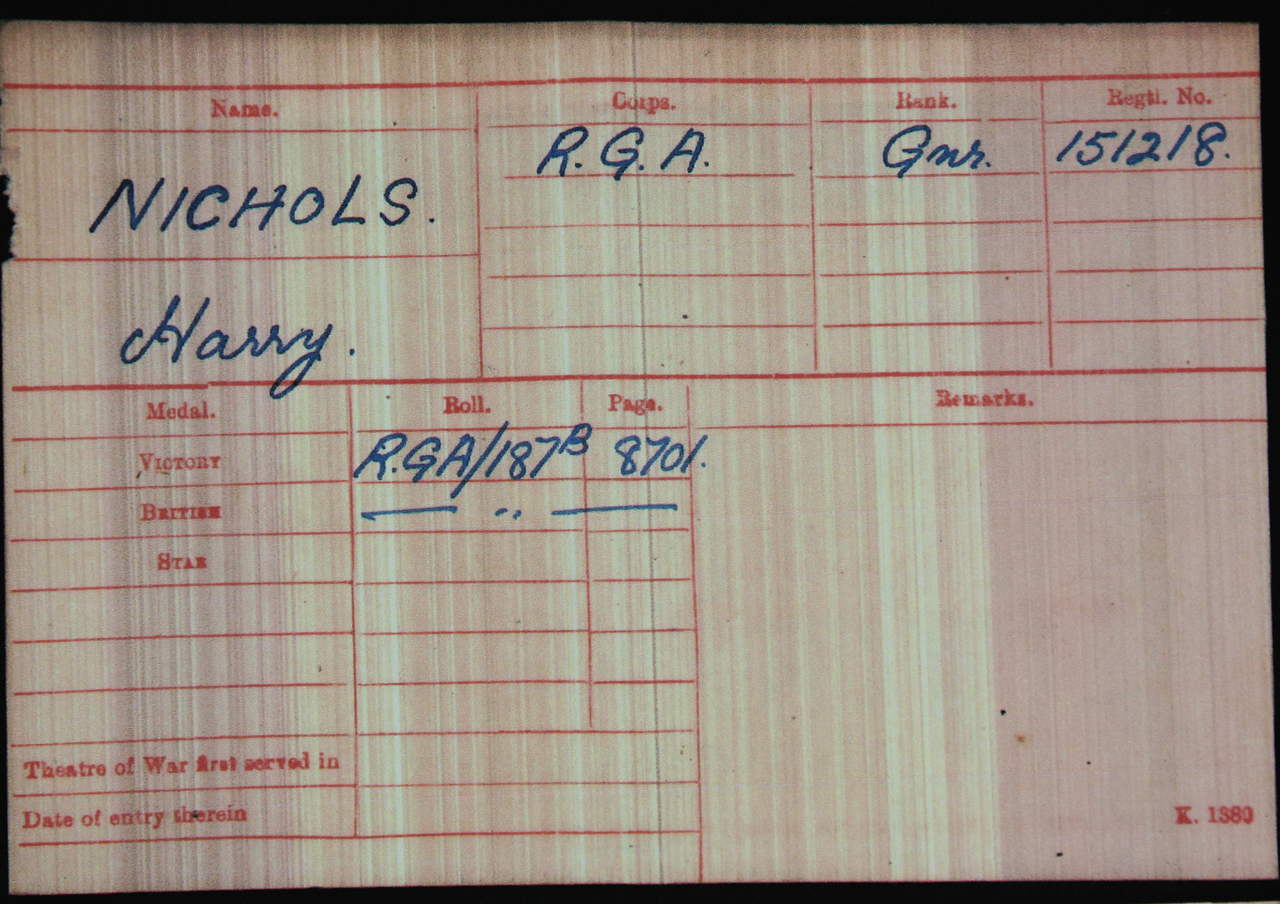 Name. Corps. Rank. Regtl. No.
R.G.A. Gnr. 151218.
NICHOLS.
Harry.
Medal. Roll. Page. Remarks.
VICTORY R.G.A/187B 8701.
BRITISH — ,, —
STAR
Theatre of War first served in
Date of entry therein
K. 1380